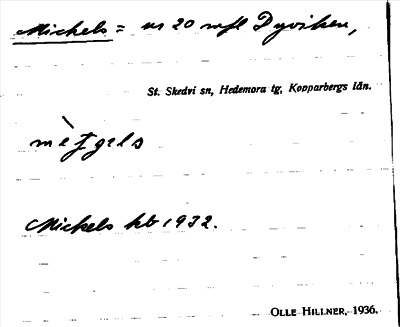 Mickels = nr 20 mfl Dyviken,
St. Skedvi sn, Hedemora tg, Kopparbergs län.
Mickels hb 1932.
OLLE HILLNER, 1936.